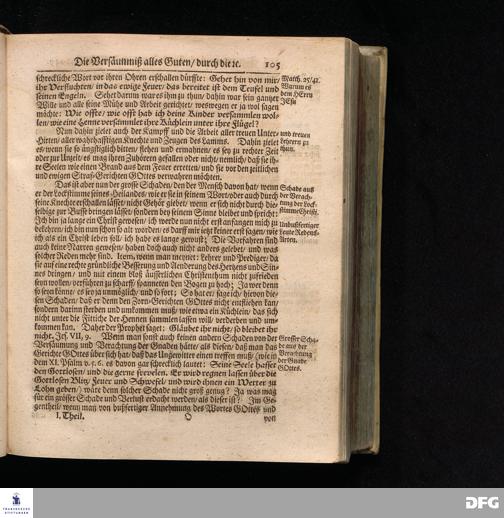 Die Versäumniß alles Guten/ durch die ꝛc. 105
schreckliche Wort vor ihren Ohren erschallen dürffte: Gehet hin von mir/
ihr Verfluchten/ in das ewige Feuer/ das bereitet ist dem Teufel und
seinen Engeln. Sehet darum war es ihm zu thun/ dahin war sein gantzer
Wille und alle seine Mühe und Arbeit gerichtet/ weswegen er ja wol sagen
möchte: Wie offt/ wie offt hab ich deine Kinder versammlen wol-
len/ wie eine Henne versammlet ihre Küchlein unter ihre Flügel?
Matth. 25/41.
Warum es
dem HErrn
JEsu
Nun dahin zielet auch der Kampff und die Arbeit aller treuen Unter-
Hirten/ aller wahrhafftigen Knechte und Zeugen des Lamms. Dahin zielet
es/ wenn sie so ängstiglich bitten/ flehen und ermahnen/ es sey zu rechter Zeit
oder zur Unzeit/ es mag ihren Zuhörern gefallen oder nicht/ nemlich/ daß sie ih-
re Seelen wie einen Brand aus dem Feuer erretten/ und sie vor den zeitlichen
und ewigen Straf-Gerichten GOttes verwahren möchten.
und treuen
Lehrern zu
thun.
Das ist aber nun der grosse Schaden/ den der Mensch davon hat/ wenn
er der Lockstimme seines Heilandes/ wie er sie in seinem Wort/ oder auch durch
seine Knechte erschallen lässet/ nicht Gehör giebet/ wenn er sich nicht durch die-
selbige zur Busse bringen lässet/ sondern bey seinem Sinne bleibet und spricht:
Ich bin ja lange ein Christ gewesen/ ich werde nun nicht erst anfangen mich zu
bekehren/ ich bin nun schon so alt worden/ es darff mir jetzt keiner erst sagen/ wie
ich als ein Christ leben soll/ ich habe es lange gewust; Die Vorfahren sind
auch keine Narren gewesen/ haben doch auch nicht anders gelebet/ und was
solcher Reden mehr sind. Item, wenn man meynet: Lehrer und Prediger/ da
sie auf eine rechte gründliche Besserung und Aenderung des Hertzens und Sin-
nes dringen/ und mit einem bloß äusserlichen Christenthum nicht zufrieden
seyn wollen/ verführen zu scharff/ spanneten den Bogen zu hoch; Ja wer denn
so seyn könte/ es sey ja unmöglich/ und so fort; So hat er/ sage ich/ hievon die-
sen Schaden/ daß er denn den Zorn-Gerichten GOttes nicht entfliehen kan/
sondern darinn sterben und umkommen muß/ wie etwa ein Küchlein/ das sich
nicht unter die Fittiche der Hennen sammlen lassen will/ verderben und um-
kommen kan. Daher der Prophet saget: Gläubet ihr nicht/ so bleibet ihr
nicht. Jes. VII, 9. Wenn man sonst auch keinen andern Schaden von der
Versäumung und Verachtung der Gnaden hätte/ als diesen/ daß man das
Gerichte GOttes über sich hat/ daß das Ungewitter einen treffen muß/ (wie in
dem XI. Psalm v. 5. 6. es davon gar schrecklich lautet: Seine Seele hasset
den Gottlosen/ und die gerne freveln. Er wird regnen lassen über die
Gottlosen Blitz/ Feuer und Schwefel/ und wird ihnen ein Wetter zu
Lohn geben/) wäre denn solcher Schade nicht groß genug? Ja was mag
für ein grösser Schade und Verlust erdacht werden/ als dieser ist? Im Ge-
gentheil/ wenn man von bußfertiger Annehmung des Wortes GOttes und
Schade aus
der Verach-
tung der Lock-
stimme Christi.
Unbußfertiger
Leute Redens-
Arten.
Grosser Scha-
de aus der
Verachtung
der Gnade
GOttes.
I. Theil. O von
FRANCKESCHE
STIFTUNGEN
DFG